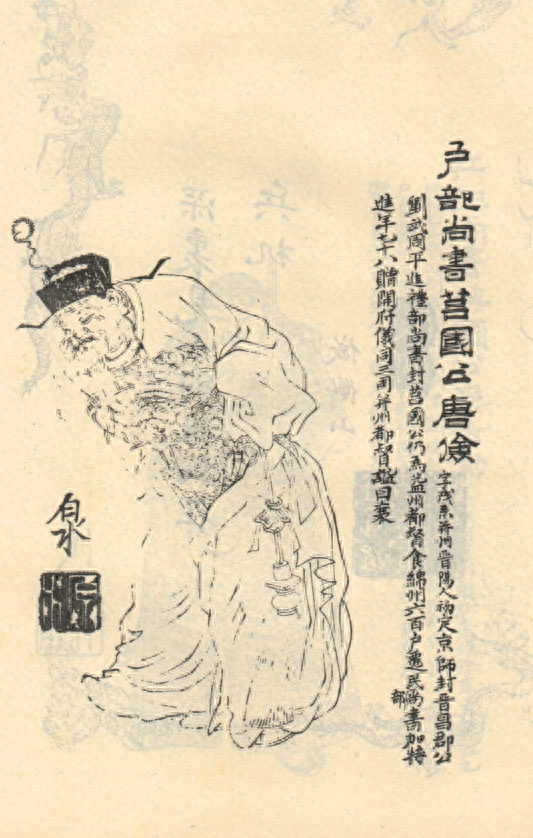 户部尚書莒國公唐儉
字茂系并州晉陽人初定京師封晉昌郡公
劉武周平進禮部尚書封莒國公仍為益州都督食綿州六百户遷民部尚書加特
進年七十八贈開府儀同三司并州都督謚曰襄